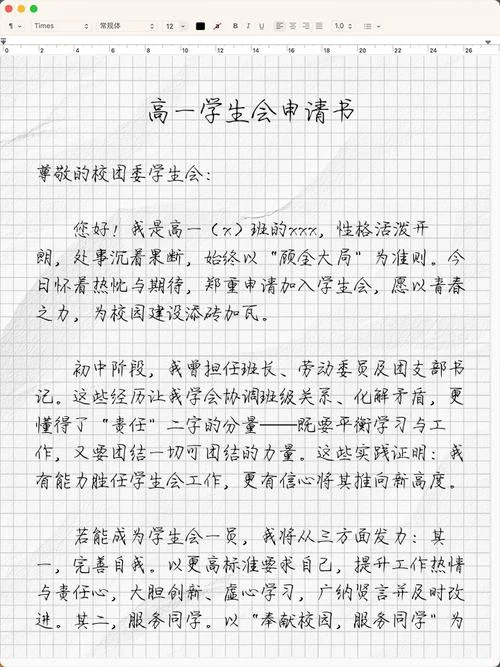 ¶ Times 常规体 12 a B I U 1.0
0 2 4 6 8 10 12 14 16 18 20 22 24 26
高一学生会申请书
尊敬的校团委学生会：
您好！我是高一（x）班的xxx，性格活泼开
朗，处事沉着果断，始终以“顾全大局”为准则。今
日怀着热忱与期待，郑重申请加入学生会，愿以青春
之力，为校园建设添砖加瓦。
初中阶段，我曾担任班长、劳动委员及团支部书
记。这些经历让我学会协调班级关系、化解矛盾，更
懂得了“责任”二字的分量——既要平衡学习与工
作，又要团结一切可团结的力量。这些实践证明：我
有能力胜任学生会工作，更有信心将其推向新高度。
若能成为学生会一员，我将从三方面发力：其
一，完善自我。以更高标准要求自己，提升工作热情
与责任心，大胆创新、虚心学习，广纳贤言并及时改
进。其二，服务同学。以“奉献校园，服务同学”为